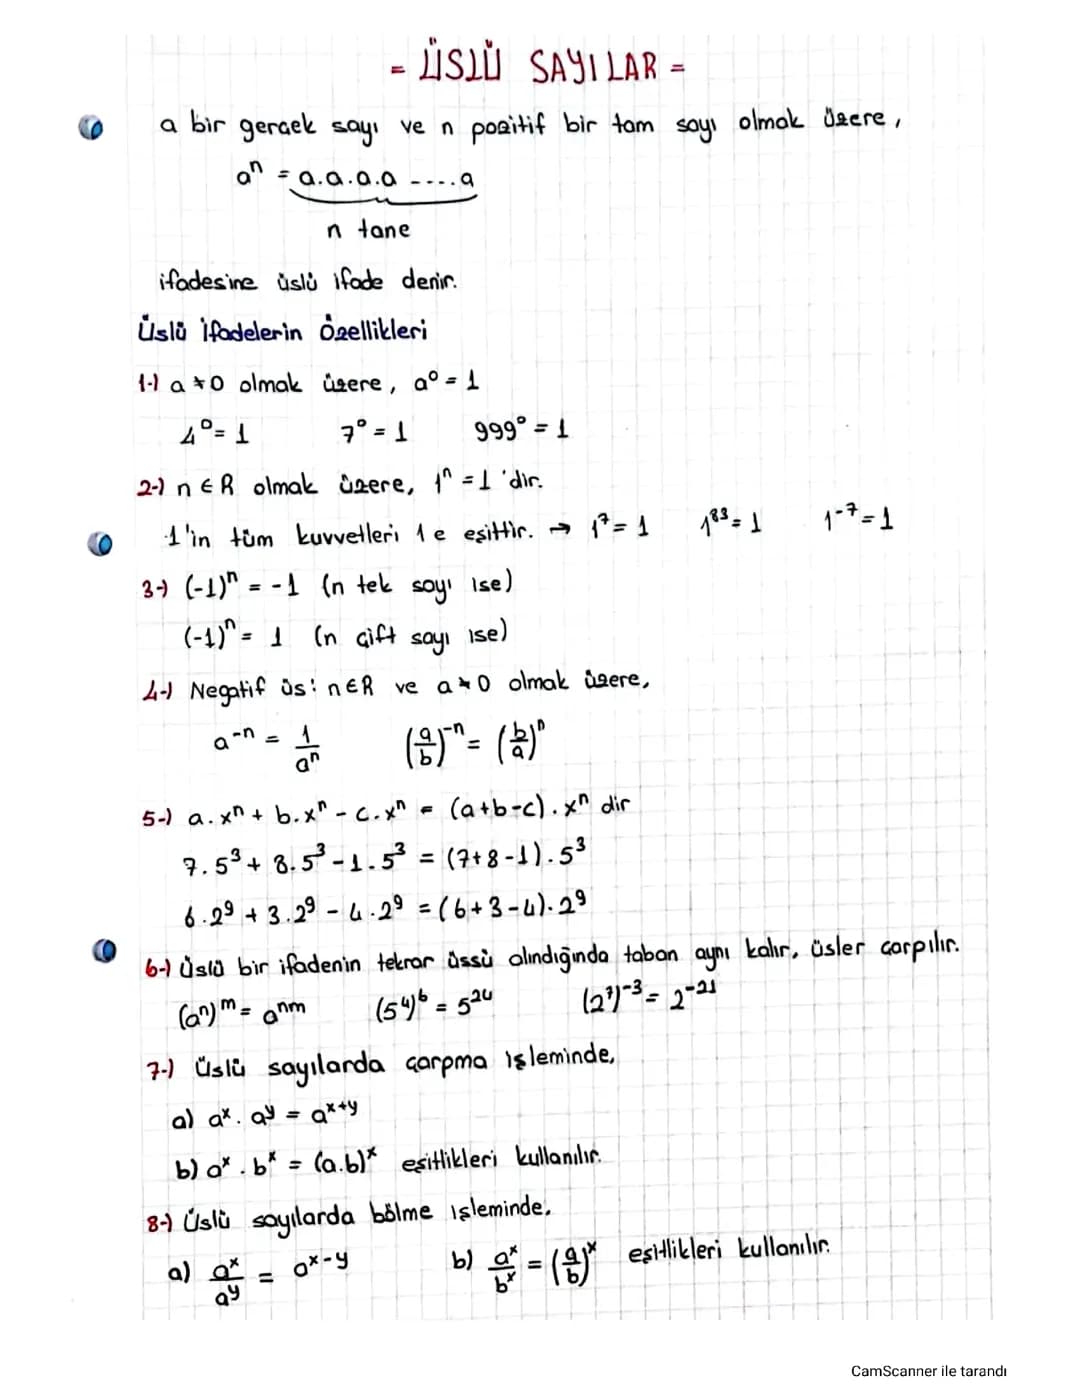 - ÜSLÜ SAYILAR -
a bir gerçek sayı ve n pozitif bir tam sayı olmak üzere,
aⁿ = a.a.a.a ----.a
n tane
ifadesine üslü ifade denir.
Üslü İfadelerin Özellikleri
1-) a ≠ 0 olmak üzere, a⁰ = 1
4⁰ = 1 7⁰ = 1 999⁰ = 1
2-) n ∈ R olmak üzere, 1ⁿ = 1 'dir.
1'in tüm kuvvetleri 1 e eşittir. → 1⁷ = 1 1⁸³ = 1 1⁻⁷ = 1
3-) (-1)ⁿ = -1 (n tek sayı ise)
(-1)ⁿ = 1 (n çift sayı ise)
4-) Negatif üs: n ∈ R ve a ≠ 0 olmak üzere,
a⁻ⁿ = 1/aⁿ (a/b)⁻ⁿ = (b/a)ⁿ
5-) a.xⁿ + b.xⁿ - c.xⁿ = (a+b-c).xⁿ dir
7.5³ + 8.5³ - 1.5³ = (7+8-1).5³
6.2⁹ + 3.2⁹ - 4.2⁹ = (6+3-4).2⁹
6-) Üslü bir ifadenin tekrar üssü alındığında taban aynı kalır, üsler çarpılır.
(aⁿ)ᵐ = aⁿᵐ (5⁴)⁶ = 5²⁴ (2⁷)⁻³ = 2⁻²¹
7-) Üslü sayılarda çarpma işleminde,
a) aˣ . aʸ = aˣ⁺ʸ
b) aˣ . bˣ = (a.b)ˣ eşitlikleri kullanılır.
8-) Üslü sayılarda bölme işleminde,
a) aˣ/aʸ = aˣ⁻ʸ b) aˣ/bˣ = (a/b)ˣ eşitlikleri kullanılır.
CamScanner ile tarandı